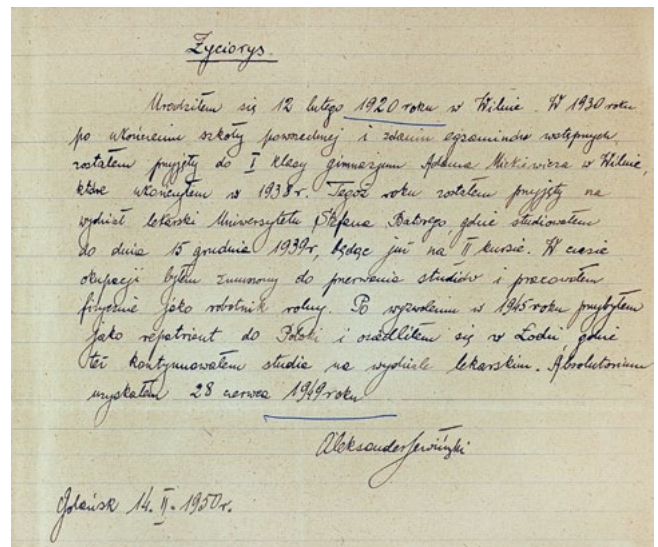 Życiorys.
Urodziłem się 12 lutego 1920 roku w Wilnie. W 1930 roku
po ukończeniu szkoły powszechnej i zdaniu egzaminów wstępnych
zostałem przyjęty do I klasy gimnazjum Adama Mickiewicza w Wilnie,
które ukończyłem w 1938 r. Tegoż roku zostałem przyjęty na
wydział lekarski Uniwersytetu Stefana Batorego, gdzie studiowałem
do dnia 15 grudnia 1939 r, będąc już na II kursie. W czasie
okupacji byłem zmuszony do przerwania studiów i pracowałem
fizycznie jako robotnik rolny. Po wyzwoleniu w 1945 roku przybyłem
jako repatriant do Polski i osiedliłem się w Łodzi, gdzie
też kontynuowałem studia na wydziale lekarskim. Absolutorium
uzyskałem 28 czerwca 1949 roku
Aleksander
Gdańsk 14.II.1950 r.